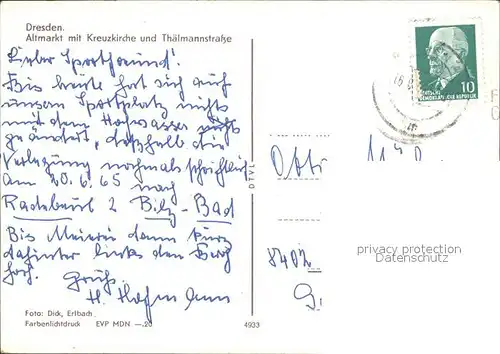 Dresden.
Altmarkt mit Kreuzkirche und Thälmannstraße
Lieber Sportfreund!
Bis heute hat sich auf
unserm Sportplatz nichts
mit dem Hochwasser nichts
geändert, deshalb die
Verlegung nochmals schriftlich
am 20.6.65 nach
Radebeul 2 Bilz-Bad
Bis dann kurz
dahinter links den Berg
hoch. Gruß
H. Hofmann
Foto: Dick, Erlbach
Farbenlichtdruck EVP MDN —.20 4933
DTVL
10
DEUTSCHE
DEMOKRATISCHE REPUBLIK
Otti
8402
G
privacy protection
Datenschutz